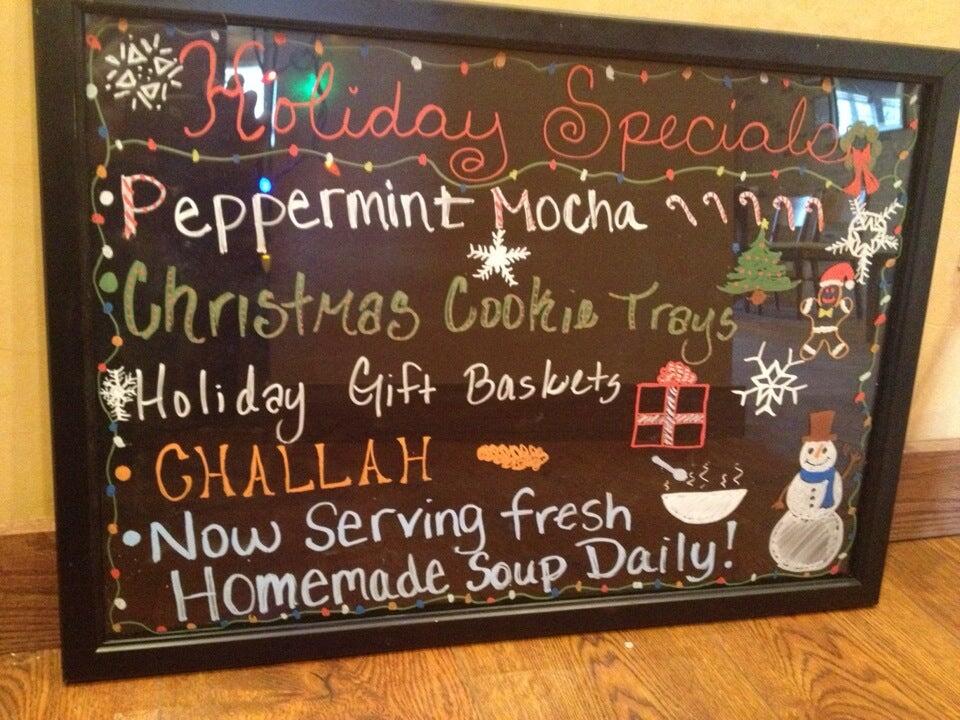 Holiday Specials
Peppermint Mocha
Christmas Cookie Trays
Holiday Gift Baskets
CHALLAH
• Now Serving fresh
Homemade Soup Daily!